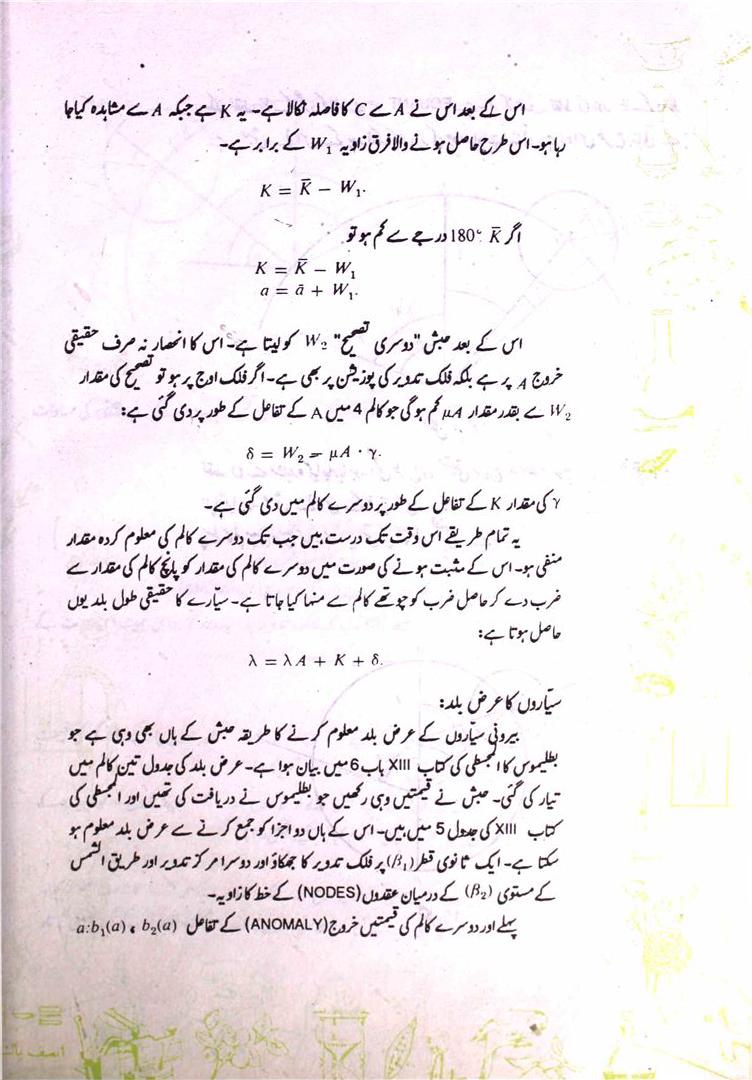 اس کے بعد اس نے A سے C کا فاصلہ نکالا ہے۔ یہ K ہے جبکہ A سے مشاہدہ کیا جا
رہا ہو۔ اس طرح حاصل ہونے والا فرق زاویہ W₁ کے برابر ہے۔
K = K̄ − W₁.
اگر K̄ 180° درجے سے کم ہو تو
K = K̄ − W₁
a = ā + W₁.
اس کے بعد حبش "دوسری تصحیح" W₂ کو لیتا ہے۔ اس کا انحصار نہ صرف حقیقی
خروج A پر ہے بلکہ فلک تدویر کی پوزیشن پر بھی ہے۔ اگر فلک اوج پر ہو تو تصحیح کی مقدار
W₂ سے بقدر مقدار μA کم ہو گی جو کالم 4 میں A کے تفاعل کے طور پر دی گئی ہے:
δ = W₂ − μA · γ.
γ کی مقدار K کے تفاعل کے طور پر دوسرے کالم میں دی گئی ہے۔
یہ تمام طریقے اس وقت تک درست ہیں جب تک دوسرے کالم کی معلوم کردہ مقدار
منفی ہو۔ اس کے مثبت ہونے کی صورت میں دوسرے کالم کی مقدار کو پانچ کالم کی مقدار سے
ضرب دے کر حاصل ضرب کو چوتھے کالم سے منہا کیا جاتا ہے۔ سیّارے کا حقیقی طول بلد یوں
حاصل ہوتا ہے:
λ = λA + K + δ.
سیّاروں کا عرض بلد:
بیرونی سیّاروں کے عرض بلد معلوم کرنے کا طریقہ حبش کے ہاں بھی وہی ہے جو
بطلیموس کا المجسطی کی کتاب XIII باب 6 میں بیان ہوا ہے۔ عرض بلد کی جدول تین کالم میں
تیار کی گئی۔ حبش نے قیمتیں وہی رکھیں جو بطلیموس نے دریافت کی تھیں اور المجسطی کی
کتاب XIII کی جدول 5 میں ہیں۔ اس کے ہاں دو اجزا کو جمع کرنے سے عرض بلد معلوم ہو
سکتا ہے۔ ایک ثانوی قطر (β₁) پر فلک تدویر کا جھکاؤ اور دوسرا مرکز تدویر اور طریق الشمس
کے مستوی (β₂) کے درمیان عقدوں (NODES) کے خط کا زاویہ۔
پہلے اور دوسرے کالم کی قیمتیں خروج (ANOMALY) کے تفاعل a:b₁(a) ، b₂(a)